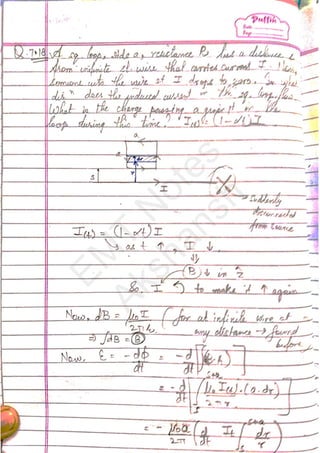 Puffin
Date
Page
Q.7.18. A sq. loop, side a, resistance R, has a distance s
from infinite st. wire that carries current I. Now,
someone cuts the wire st I drops to zero. In what
dirn does the induced current in the sq. loop, flow.
What is the charge passing a given pt in the
loop during this time? I(t) = (1-αt)I
a
a
r
s
I
→ Suddenly
disconnected
from source
I(t) = (1-αt) I
↳ as t ↑, I ↓
⇓
(B)↓ in ẑ
So I ↺ to make it ↑ again
Now, dB = μ0I / 2πr (for at infinite wire at
any distance → found
before)
⇒ ∫dB = B
Now, ε = -dΦ/dt = -d/dt
= -d/dt [∫ μ0 I(t) . (a.dr) / 2πr]
= -μ0a/2π (d/dt It ∫ dr/r)
s+a
s
EMT Notes